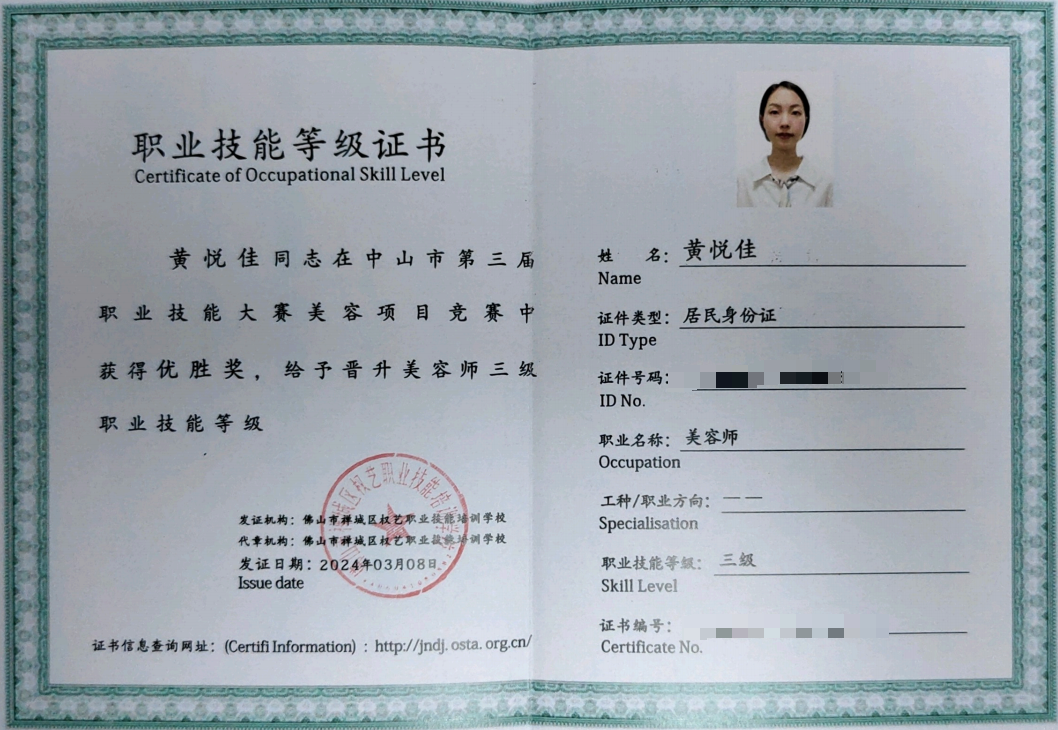 职业技能等级证书
Certificate of Occupational Skill Level
黄悦佳同志在中山市第三届
职业技能大赛美容项目竞赛中
获得优胜奖，给予晋升美容师三级
职业技能等级
发证机构：佛山市禅城区权艺职业技能培训学校
代章机构：佛山市禅城区权艺职业技能培训学校
发证日期：2024年03月08日
Issue date
证书信息查询网址：(Certifi Information)：http://jndj.osta.org.cn/
姓 名：黄悦佳
Name
证件类型：居民身份证
ID Type
证件号码：
ID No.
职业名称：美容师
Occupation
工种/职业方向：——
Specialisation
职业技能等级：三级
Skill Level
证书编号：
Certificate No.